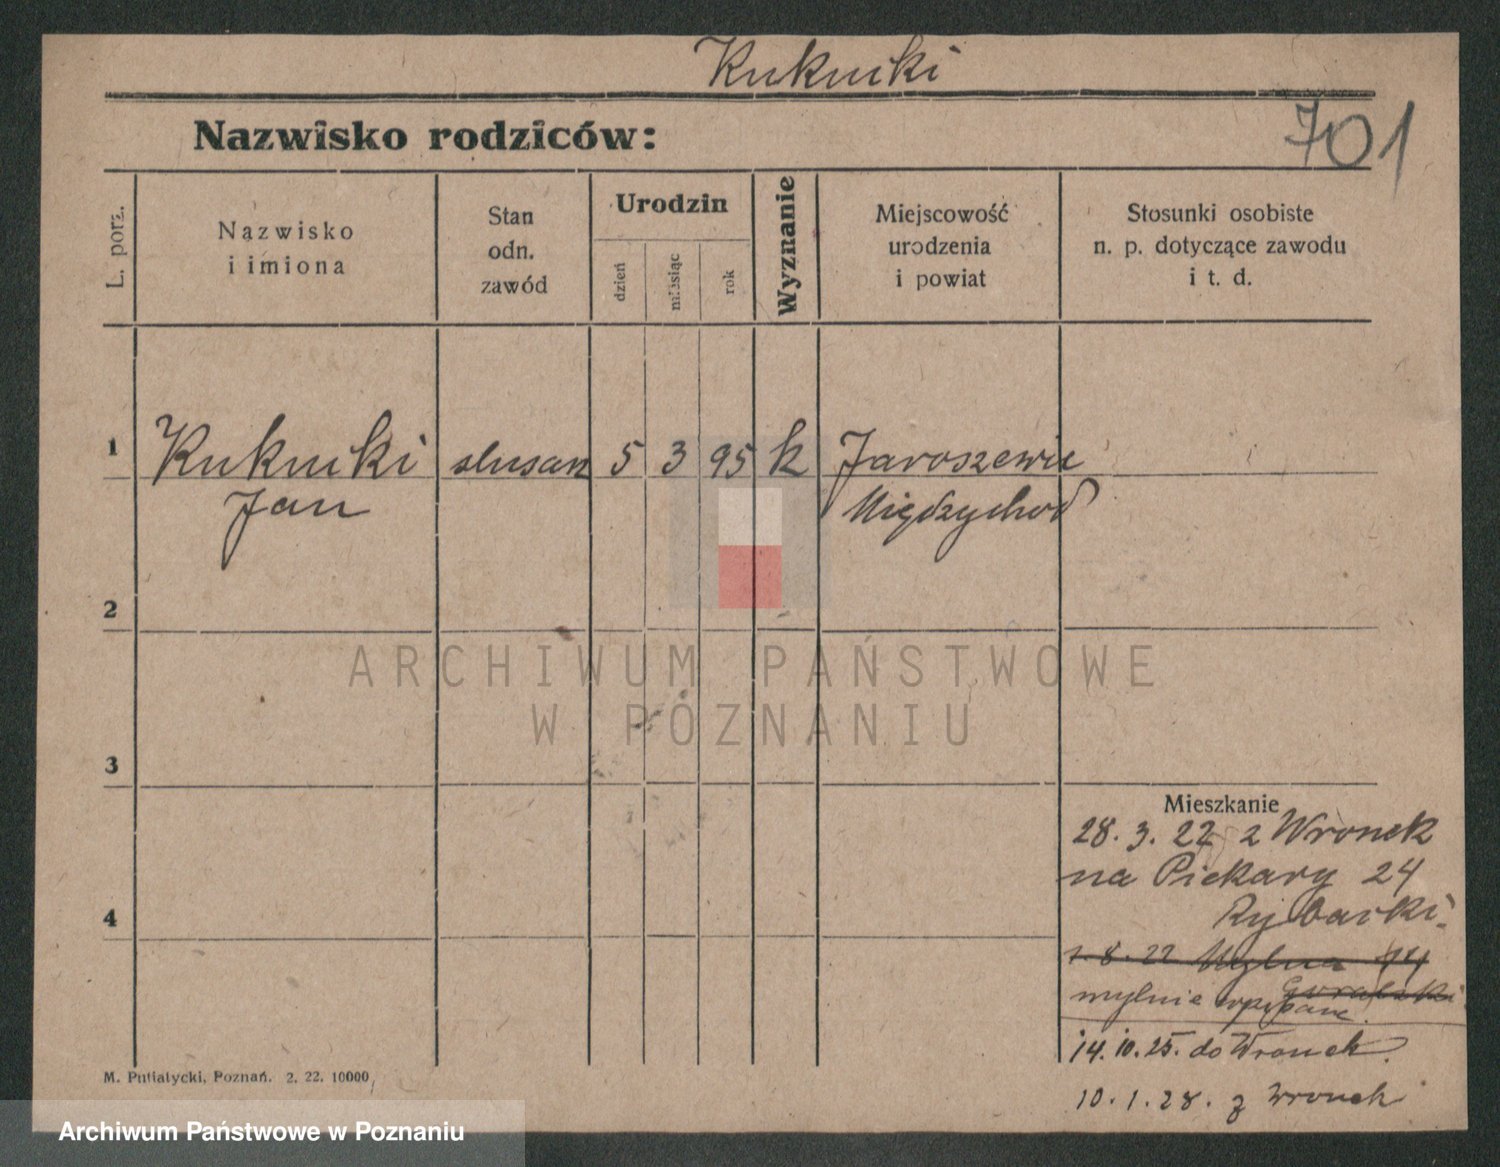 Kukucki
Nazwisko rodziców:
701
L. porz.
Nazwisko
i imiona
Stan
odn.
zawód
Urodzin
dzień
miesiąc
rok
Wyznanie
Miejscowość
urodzenia
i powiat
Stosunki osobiste
n. p. dotyczące zawodu
i t. d.
1
Kukucki
Jan
slusarz
5
3
95
k
Jaroszewie
Międzychod
2
3
4
ARCHIWUM PAŃSTWOWE
W POZNANIU
Mieszkanie
28. 3. 22 z Wronek
na Piekary 24
Rybacki.
1. 8. 22 Mylna 14
Goralski
mylnie wpisane.
14. 10. 25. do Wronek.
10. 1. 28. z Wronek
M. Putiatycki, Poznań. 2. 22. 10000,
Archiwum Państwowe w Poznaniu